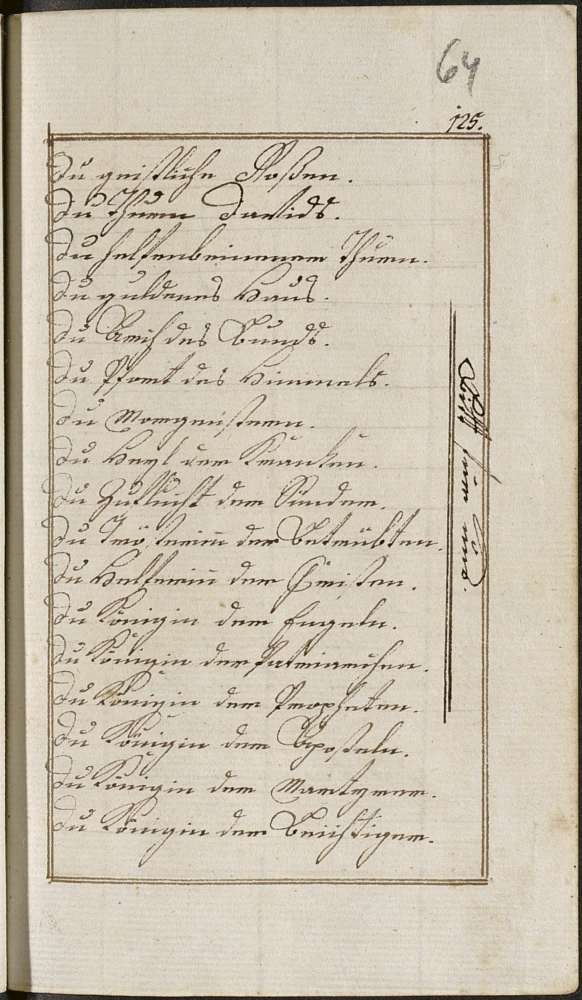 64
125.
Du geistliche Roßen.
Du Thurn Davids.
Du helfenbeinener Thurn.
Du guldenes Haus.
Du Arch des Bunds.
Du Pfort des Himmels.
Du Morgenstern.
Du Heyl der Kranken.
Du Zuflucht der Sünder.
Du Trösterin der Betrübten.
Du Helferin der Christen.
Du Königin der Engeln.
Du Königin der Patriarchen.
Du Königin der Propheten.
Du Königin der Aposteln.
Du Königin der Martyrer.
Du Königin der Beichtiger.
Bitt für uns.